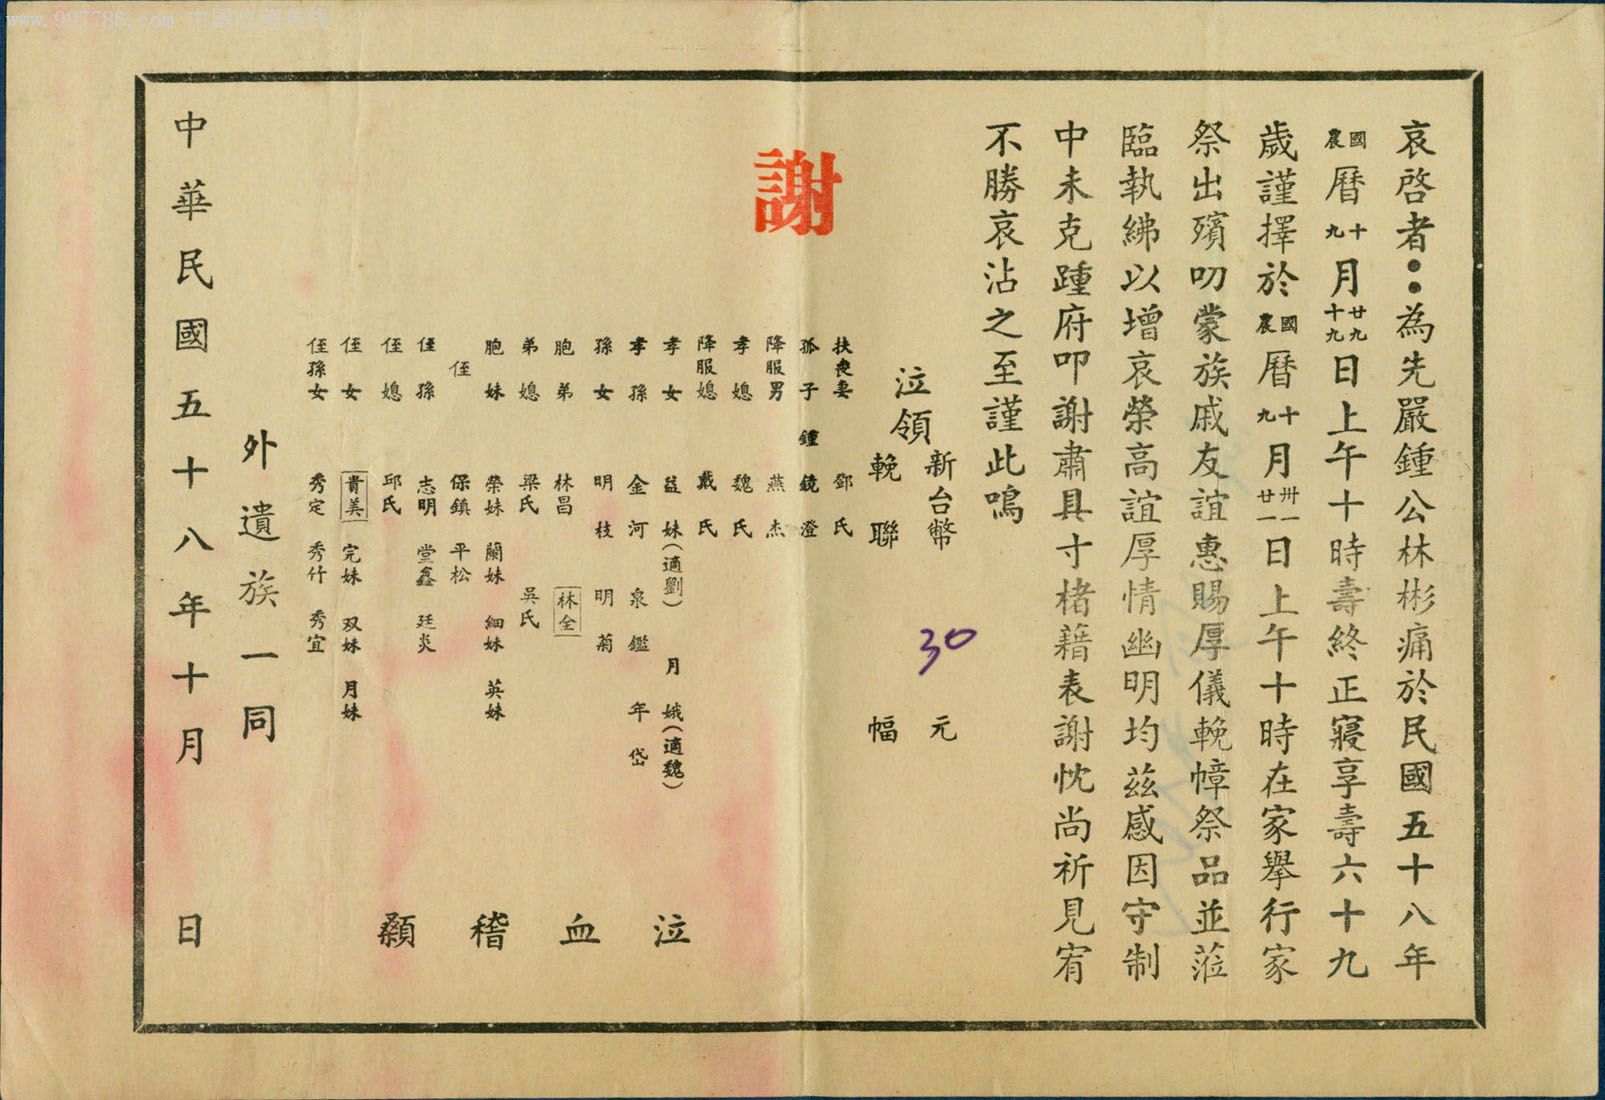 www.997788.com 中国收藏热线
哀啓者：為先嚴鍾公林彬痛於民國五十八年
國農曆十九月廿九十九日上午十時壽終正寢享壽六十九
歲謹擇於國農曆十九月卅一廿一日上午十時在家舉行家
祭出殯叨蒙族戚友誼惠賜厚儀輓幛祭品並蒞
臨執紼以增哀榮高誼厚情幽明均茲感因守制
中未克踵府叩謝肅具寸楮藉表謝忱尚祈見宥
不勝哀沾之至謹此鳴
謝
泣領
新台幣 30 元
輓聯 幅
扶喪妻 鄧氏
孤子 鍾鏡澄
降服男 燕杰
孝媳 魏氏
降服媳 戴氏
孝女 益妹（適劉） 月娥（適魏）
孝孫 金河 泉鑑 年岱
孫女 明枝 明菊
胞弟 林昌 林全
弟媳 梁氏 吳氏
胞妹 榮妹 蘭妹 細妹 英妹
侄 保鎮 平松
侄孫 志明 堂鑫 廷炎
侄媳 邱氏
侄女 貴美 完妹 双妹 月妹
侄孫女 秀定 秀竹 秀宜
泣血稽顙
外遺族一同
中華民國五十八年十月 日